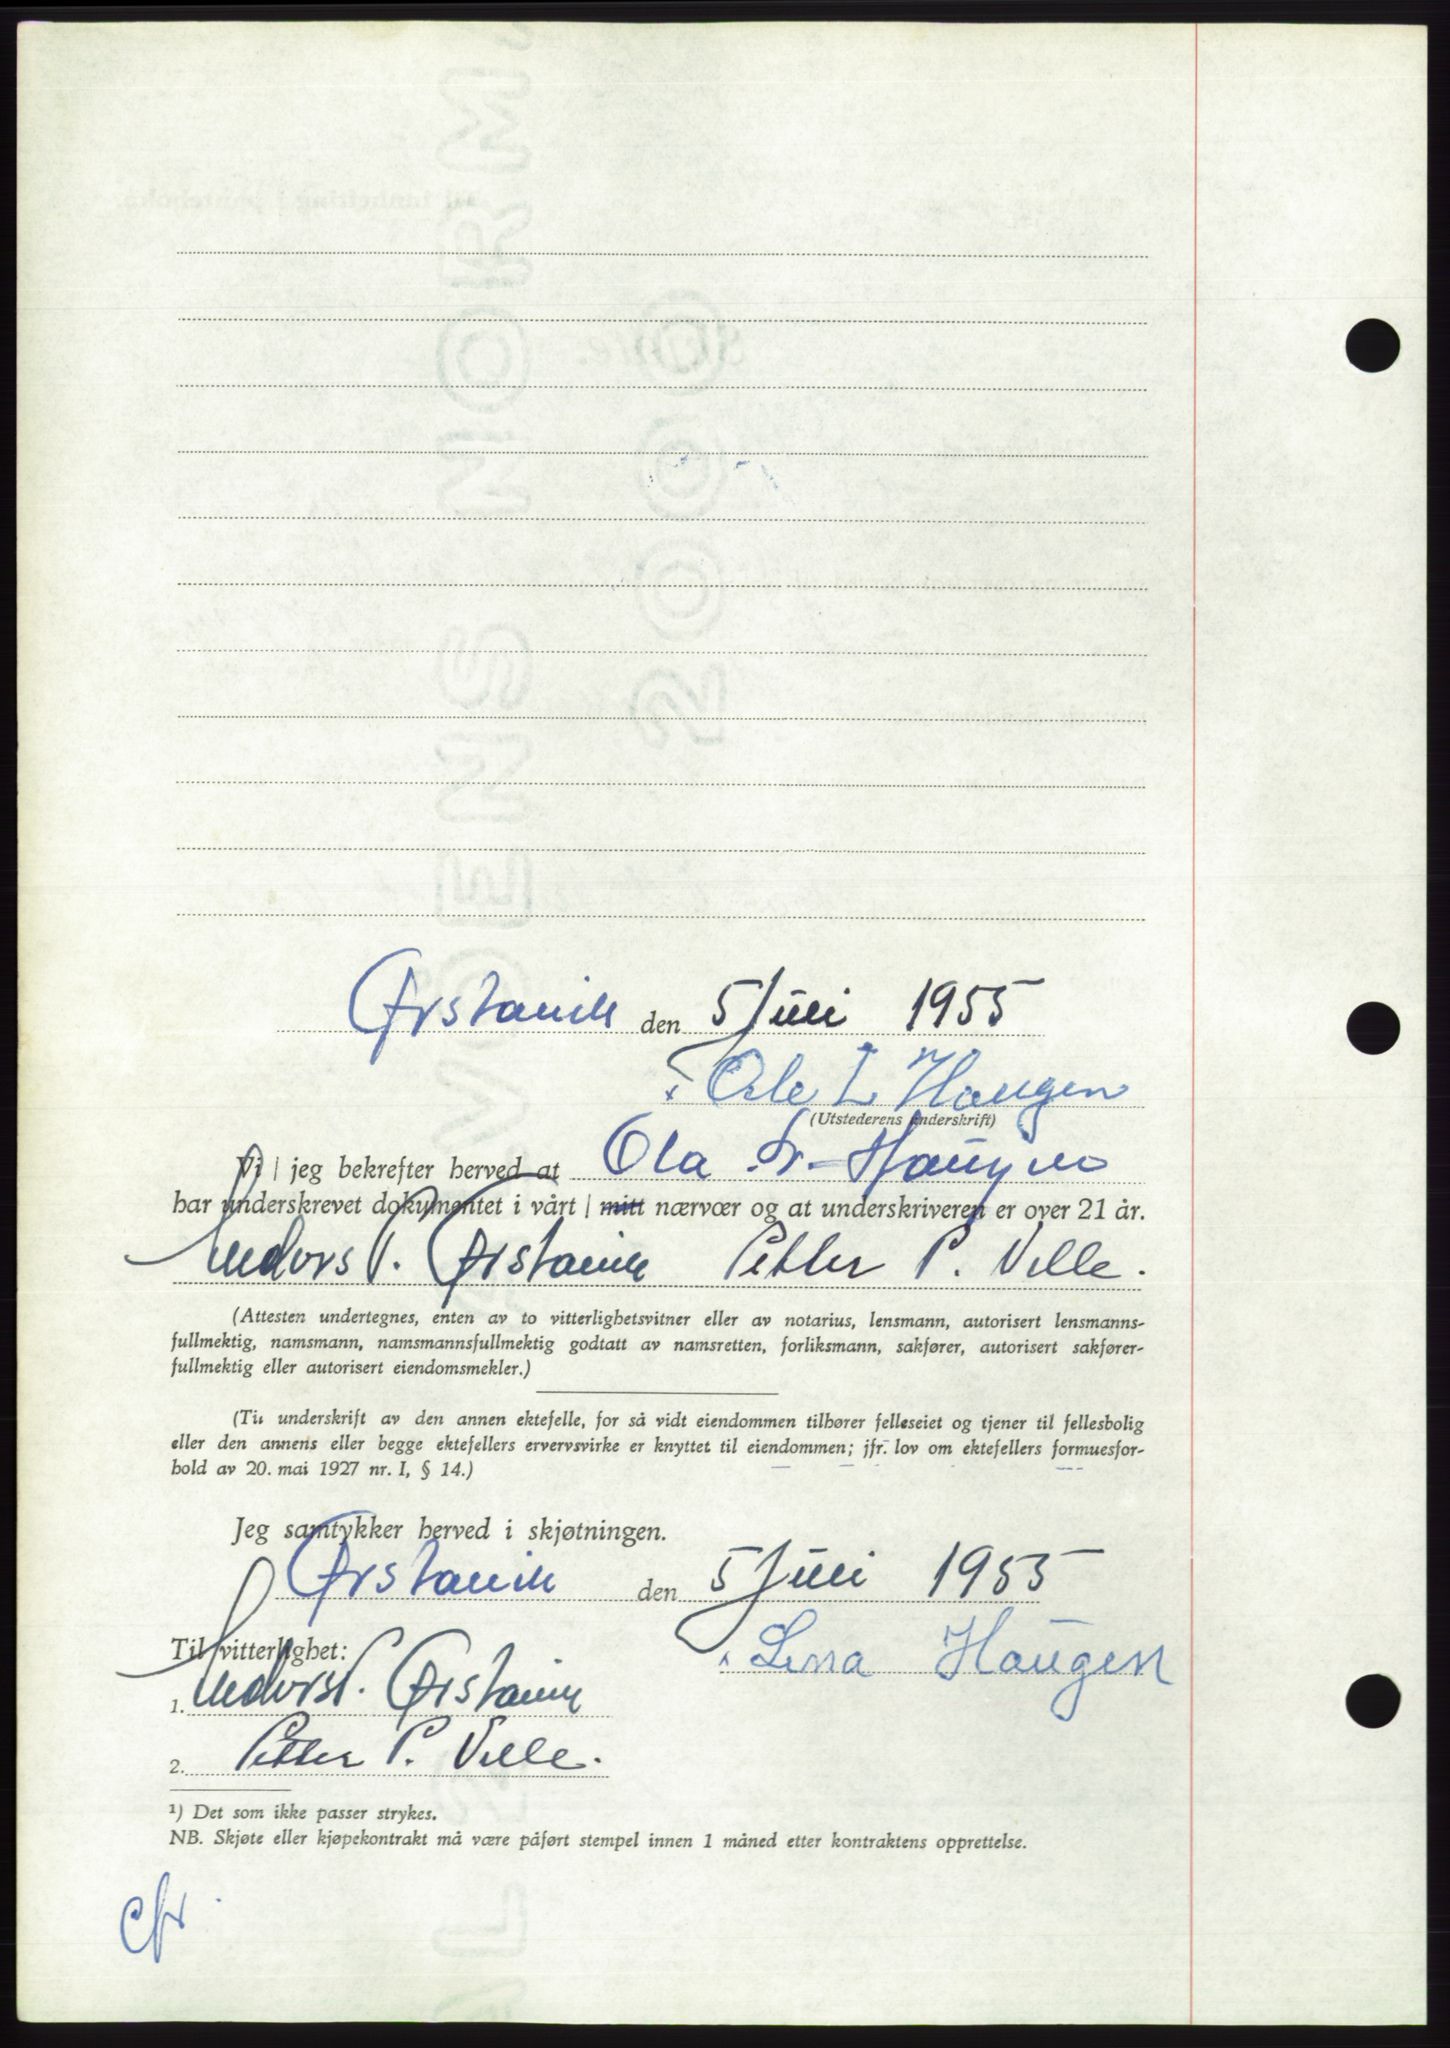 Ørstavik den 5 Juli 1955
Ole L Haugen
(Utstederens underskrift)
Vi | jeg bekrefter herved at Ola L. Haugen
har underskrevet dokumentet i vårt | mitt nærvær og at underskriveren er over 21 år.
Anders P. Ørstavik Petter P. Velle.
(Attesten undertegnes, enten av to vitterlighetsvitner eller av notarius, lensmann, autorisert lensmanns-
fullmektig, namsmann, namsmannsfullmektig godtatt av namsretten, forliksmann, sakfører, autorisert sakfører-
fullmektig eller autorisert eiendomsmekler.)
(Til underskrift av den annen ektefelle, for så vidt eiendommen tilhører felleseiet og tjener til fellesbolig
eller den annens eller begge ektefellers ervervsvirke er knyttet til eiendommen; jfr. lov om ektefellers formuesfor-
hold av 20. mai 1927 nr. I, § 14.)
Jeg samtykker herved i skjøtningen.
Ørstavik den 5 Juli 1955
Til vitterlighet:
Lena Haugen
1. Anders P. Ørstavik
2. Petter P. Velle.
¹) Det som ikke passer strykes.
NB. Skjøte eller kjøpekontrakt må være påført stempel innen 1 måned etter kontraktens opprettelse.